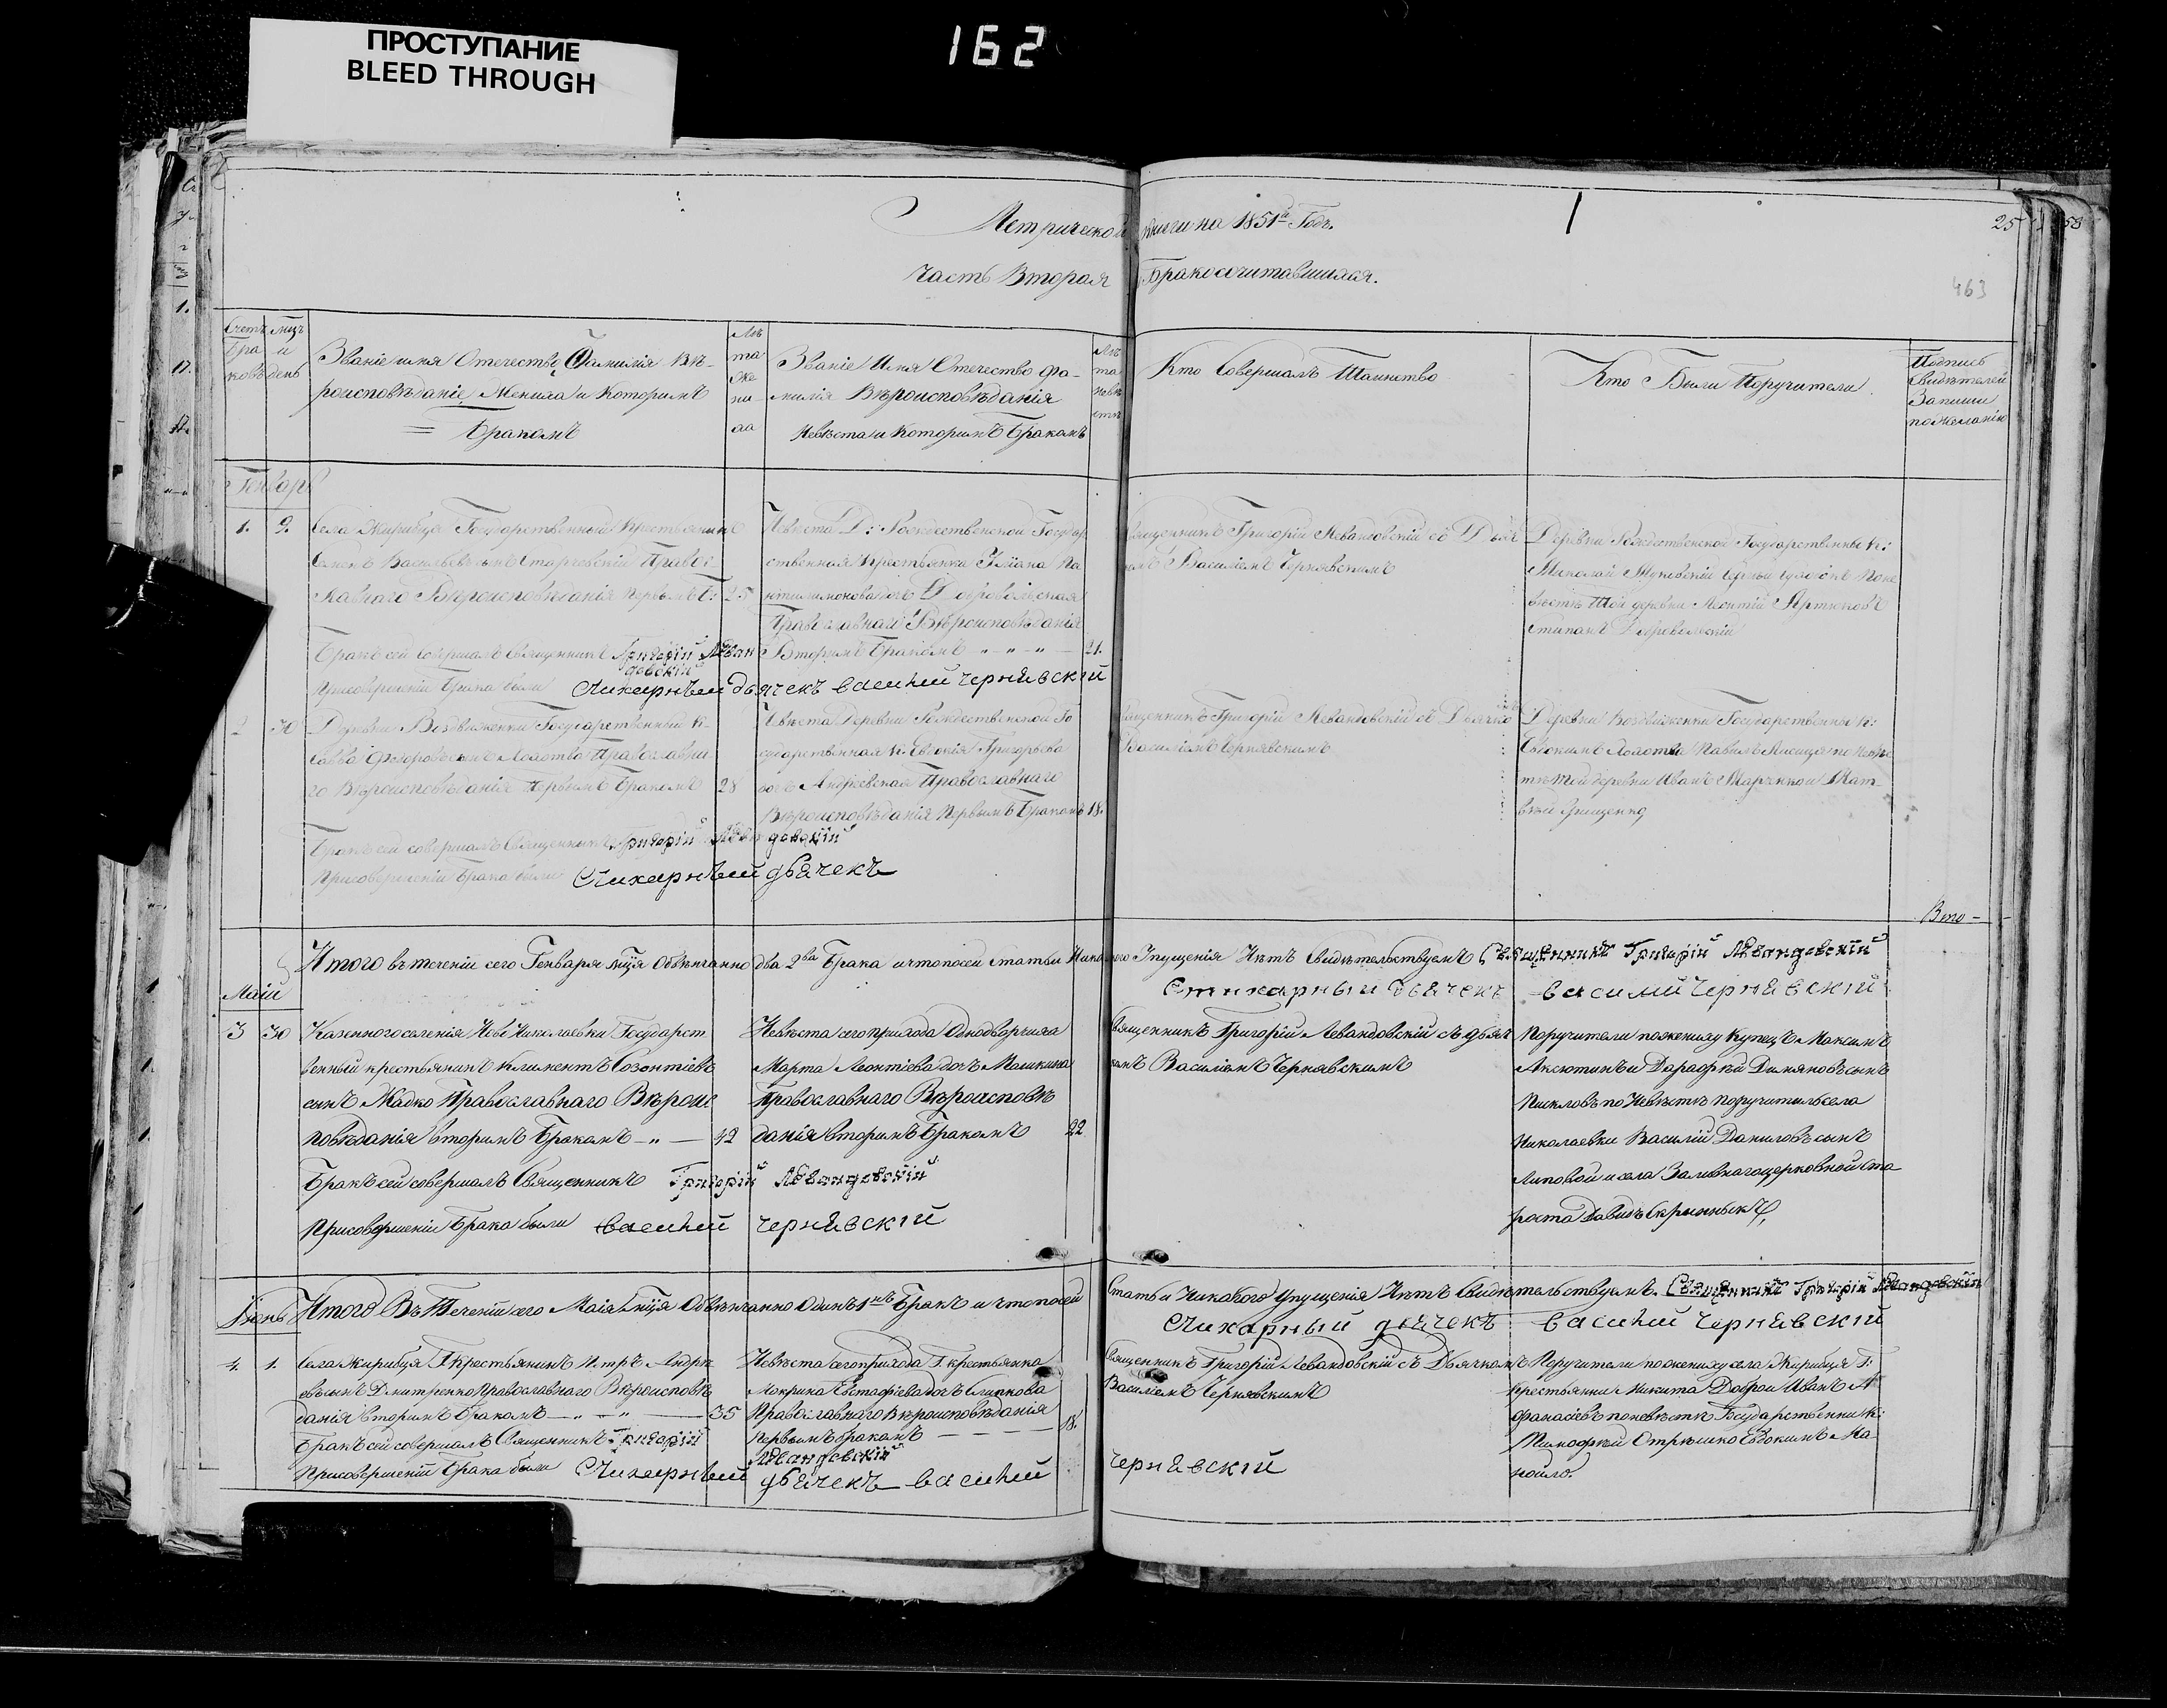 ПРОСТУПАНИЕ
BLEED THROUGH
162
Метрической книги на 1851й Годъ.
25
58
Часть Вторая Бракосочитавшихся.
463
Счетъ Браковъ
мцъ и день
Званіе имя Отечество Фамилія Вѣ-
роисповѣданіе Жениха и Которимъ
Бракомъ
Лѣ
та
же
ни
ха
Званіе Имя Отечество фа-
милія Вѣроисповѣданія
Невѣста и Которимъ Бракомъ
Лѣ
та
невѣ
сты
Кто Совершалъ Таинство
Кто Были Поручители
Подпись
Свидѣтелей
Записи
по желанію
Генварь
1. 9.
Села Жирибца Государственный Крестьянинъ
Василіевъ сынъ Православ-
Славнаго Вѣроисповѣданія первымъ Б: 25
Бракъ сей совершалъ Священникъ Григорій Леван
довскій
При совершеніи Брака были Стихарный дьячекъ василий чернявскій
Невѣста Д: Рождественской Государ-
ственная Крестьянка
дочь
Православнаго Вѣроисповѣданія
Вторимъ Бракомъ 21.
Священникъ Григорій Левандовскій съ Дьяч
комъ Василіемъ Чернявскимъ
Деревни Рождественской Государственные К:
Николай по не
вѣстѣ той деревни Леонтій Артюховъ
2 30
Деревни Воздвиженки Государственный К-
Савва Федоровъ сынъ Православна
го Вѣроисповѣданія Первымъ Бракомъ 28
Бракъ сей совершалъ Священникъ Григорій Леван довскій
При совершеніи Брака были Стихарный дьячекъ
Невѣста Деревни Рождественской Го
сударственная К. Евдокія Григорьева
дочь Андреевская Православнаго
Вѣроисповѣданія Первымъ Бракомъ 18.
Священникъ Григорій Левандовскій съ Дьячко
Василіемъ Чернявскимъ
Деревни Воздвиженки Государственные К:
Евдокимъ Павилъ Лисица по Невѣс
тѣ той деревни Иванъ Марченко и Мат-
вѣй Грищенко
Вто-
Итого въ теченіи сего Генваря мця Обвѣнчанно два 2ва Брака и что по сей Статьи Никакого Упущенія Нѣтъ Свидѣтельствуемъ Священникъ Григорій Левандовскій
Стихарный дьячекъ василий Чернявскій
Маій
3 30
Казенного селенія Ново Николаевки Государст
венный крестьянинъ Климентъ Созонтіевъ
сынъ Жадко Православнаго Вѣроис
повѣданія вторимъ Бракомъ 42
Бракъ сей совершалъ Священникъ Григорій Левандовскій
При совершеніи Брака были василий чернявскій
Невѣста сего прихода Однодворчиха
Марта Леонтіева дочь Машкина
Православнаго Вѣроисповѣ
данія вторимъ Бракомъ 22
Священникъ Григорій Левандовскій съ дьяч
комъ Василіемъ Чернявскимъ
Поручители по жениху Купецъ Максимъ
Аксютинъ и сынъ
по Невѣстѣ поручитиль села
Николаевки Василій Даниловъ сынъ
Липовой и села Заливнаго церковной ста
роста Давидъ Скрыпникъ
Іюнь
Итого Въ Теченіи сего Маія мція Обвѣнчанно Одинъ 1нъ Бракъ и что по сей Статьи Никакого Упущенія Нѣтъ Свидѣтельствуемъ. Священникъ Григорій Левандовскій
Стихарный дьячекъ василий Чернявскій
4. 1.
Села Жирибца Г. Крестьянинъ Петръ Андре
евъ сынъ Дмитренко Православнаго Вѣроисповѣ
данія вторимъ Бракомъ 35
Бракъ сей совершалъ Священникъ Григорій Левандовскій
При совершеніи Брака были Стихарный дьячекъ василий чернявскій
Невѣста сего прихода Г. крестьянка
Мокрина Евстафіева дочь
Православнаго Вѣроисповѣданія
первымъ бракомъ 18.
Священникъ Григорій Левандовскій съ Дьячкомъ
Василіемъ Чернявскимъ
Поручители по жениху села Жирибца Г:
Крестьяни Никита Доброи Иванъ А
фанасіевъ по невѣстѣ Государственни К:
Тимофѣй Евдокимъ Ма
нойло.